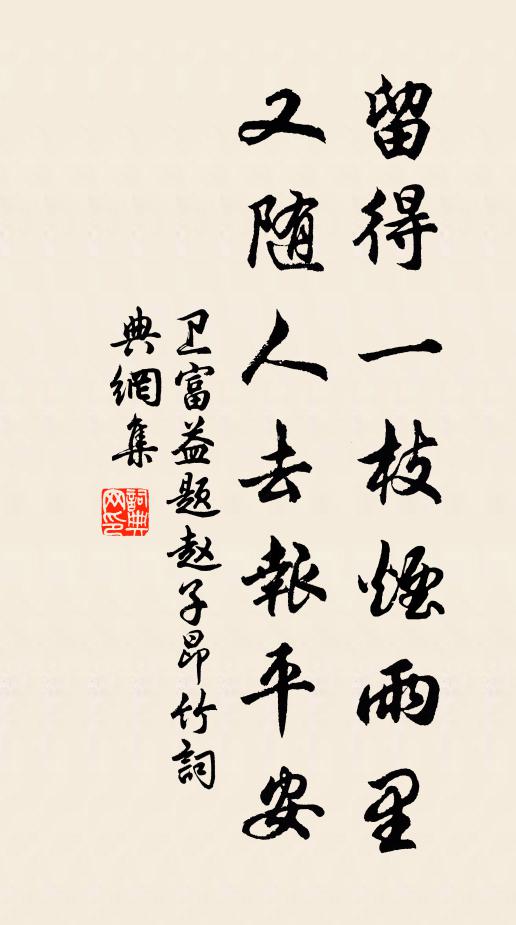 留得一枝煙雨里
又随人去報平安
卫富益题赵子昂竹詞
典網集
詞典
网印